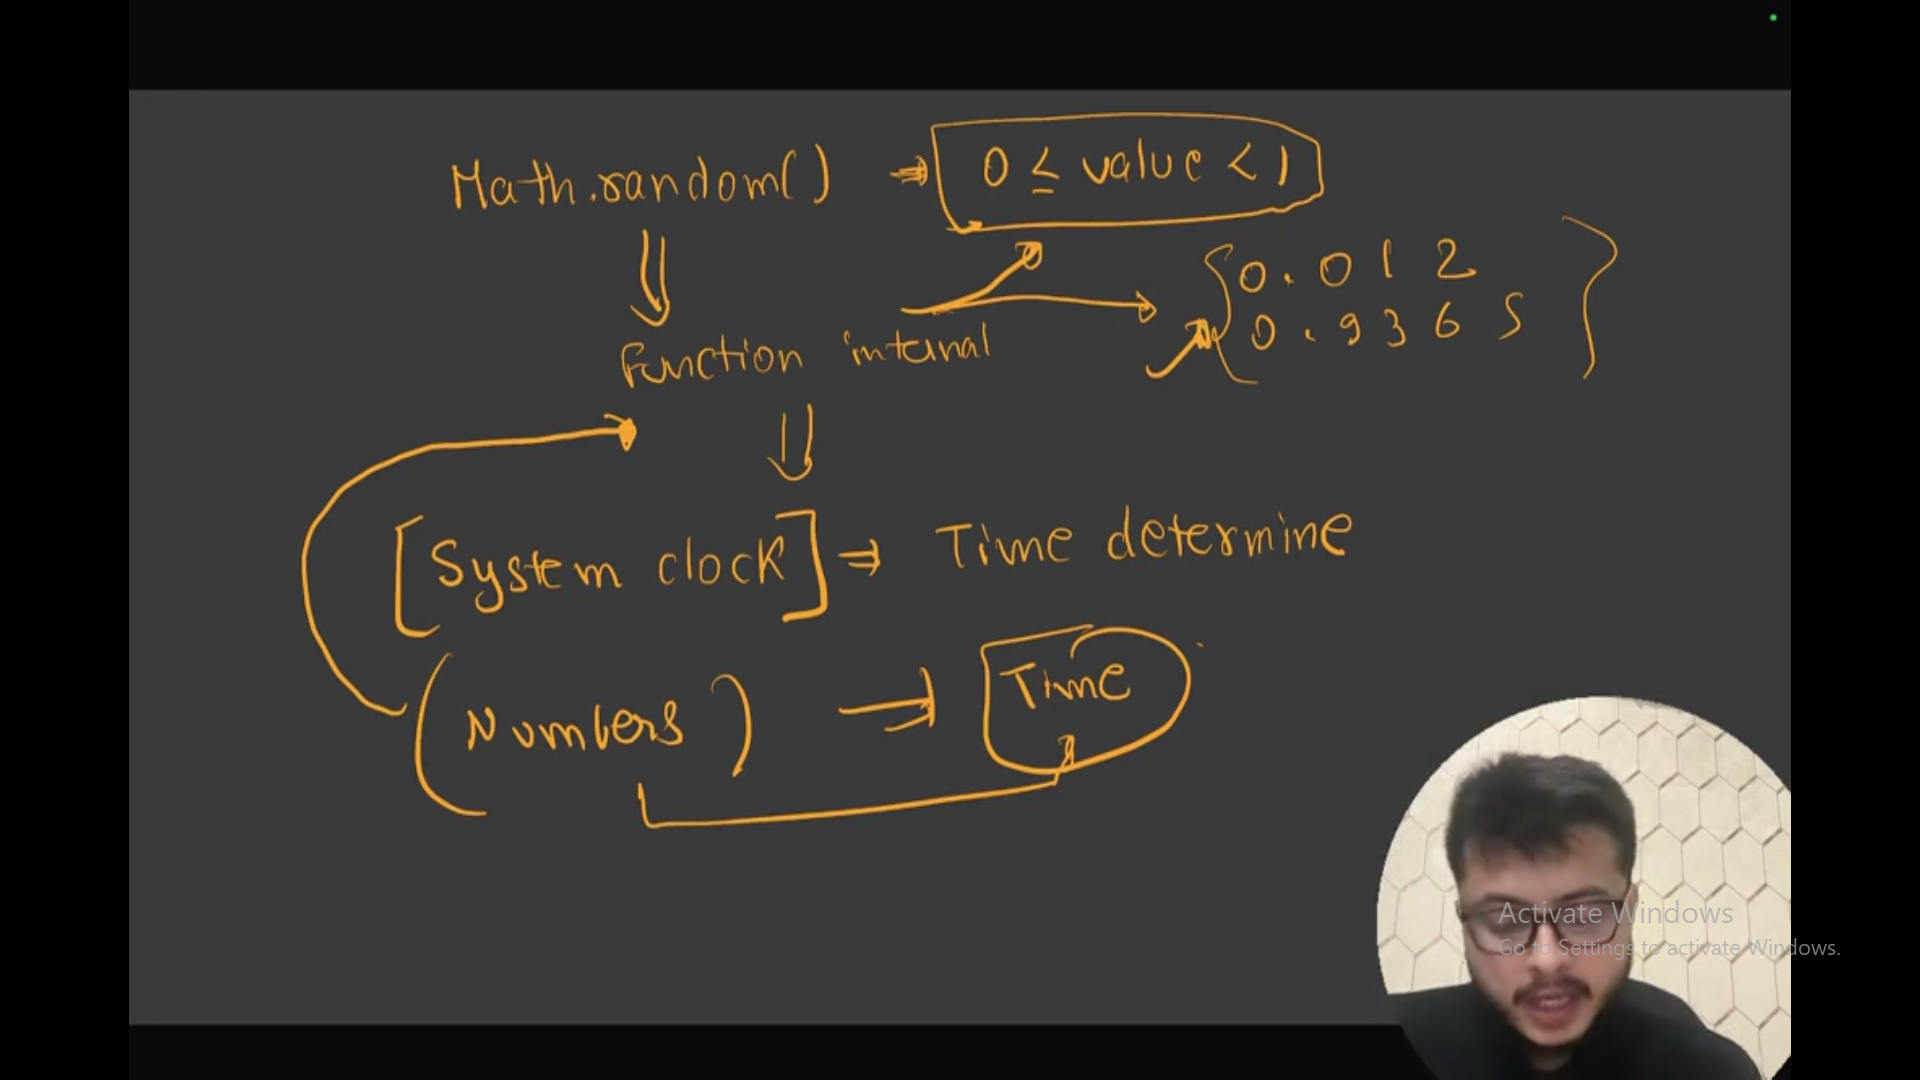 Math.random() ⇒ 0 ≤ value < 1
0.012
0.9365
Function internal
[System clock] ⇒ Time determine
(Numbers) ⇒ Time
Activate Windows
Go to Settings to activate Windows.